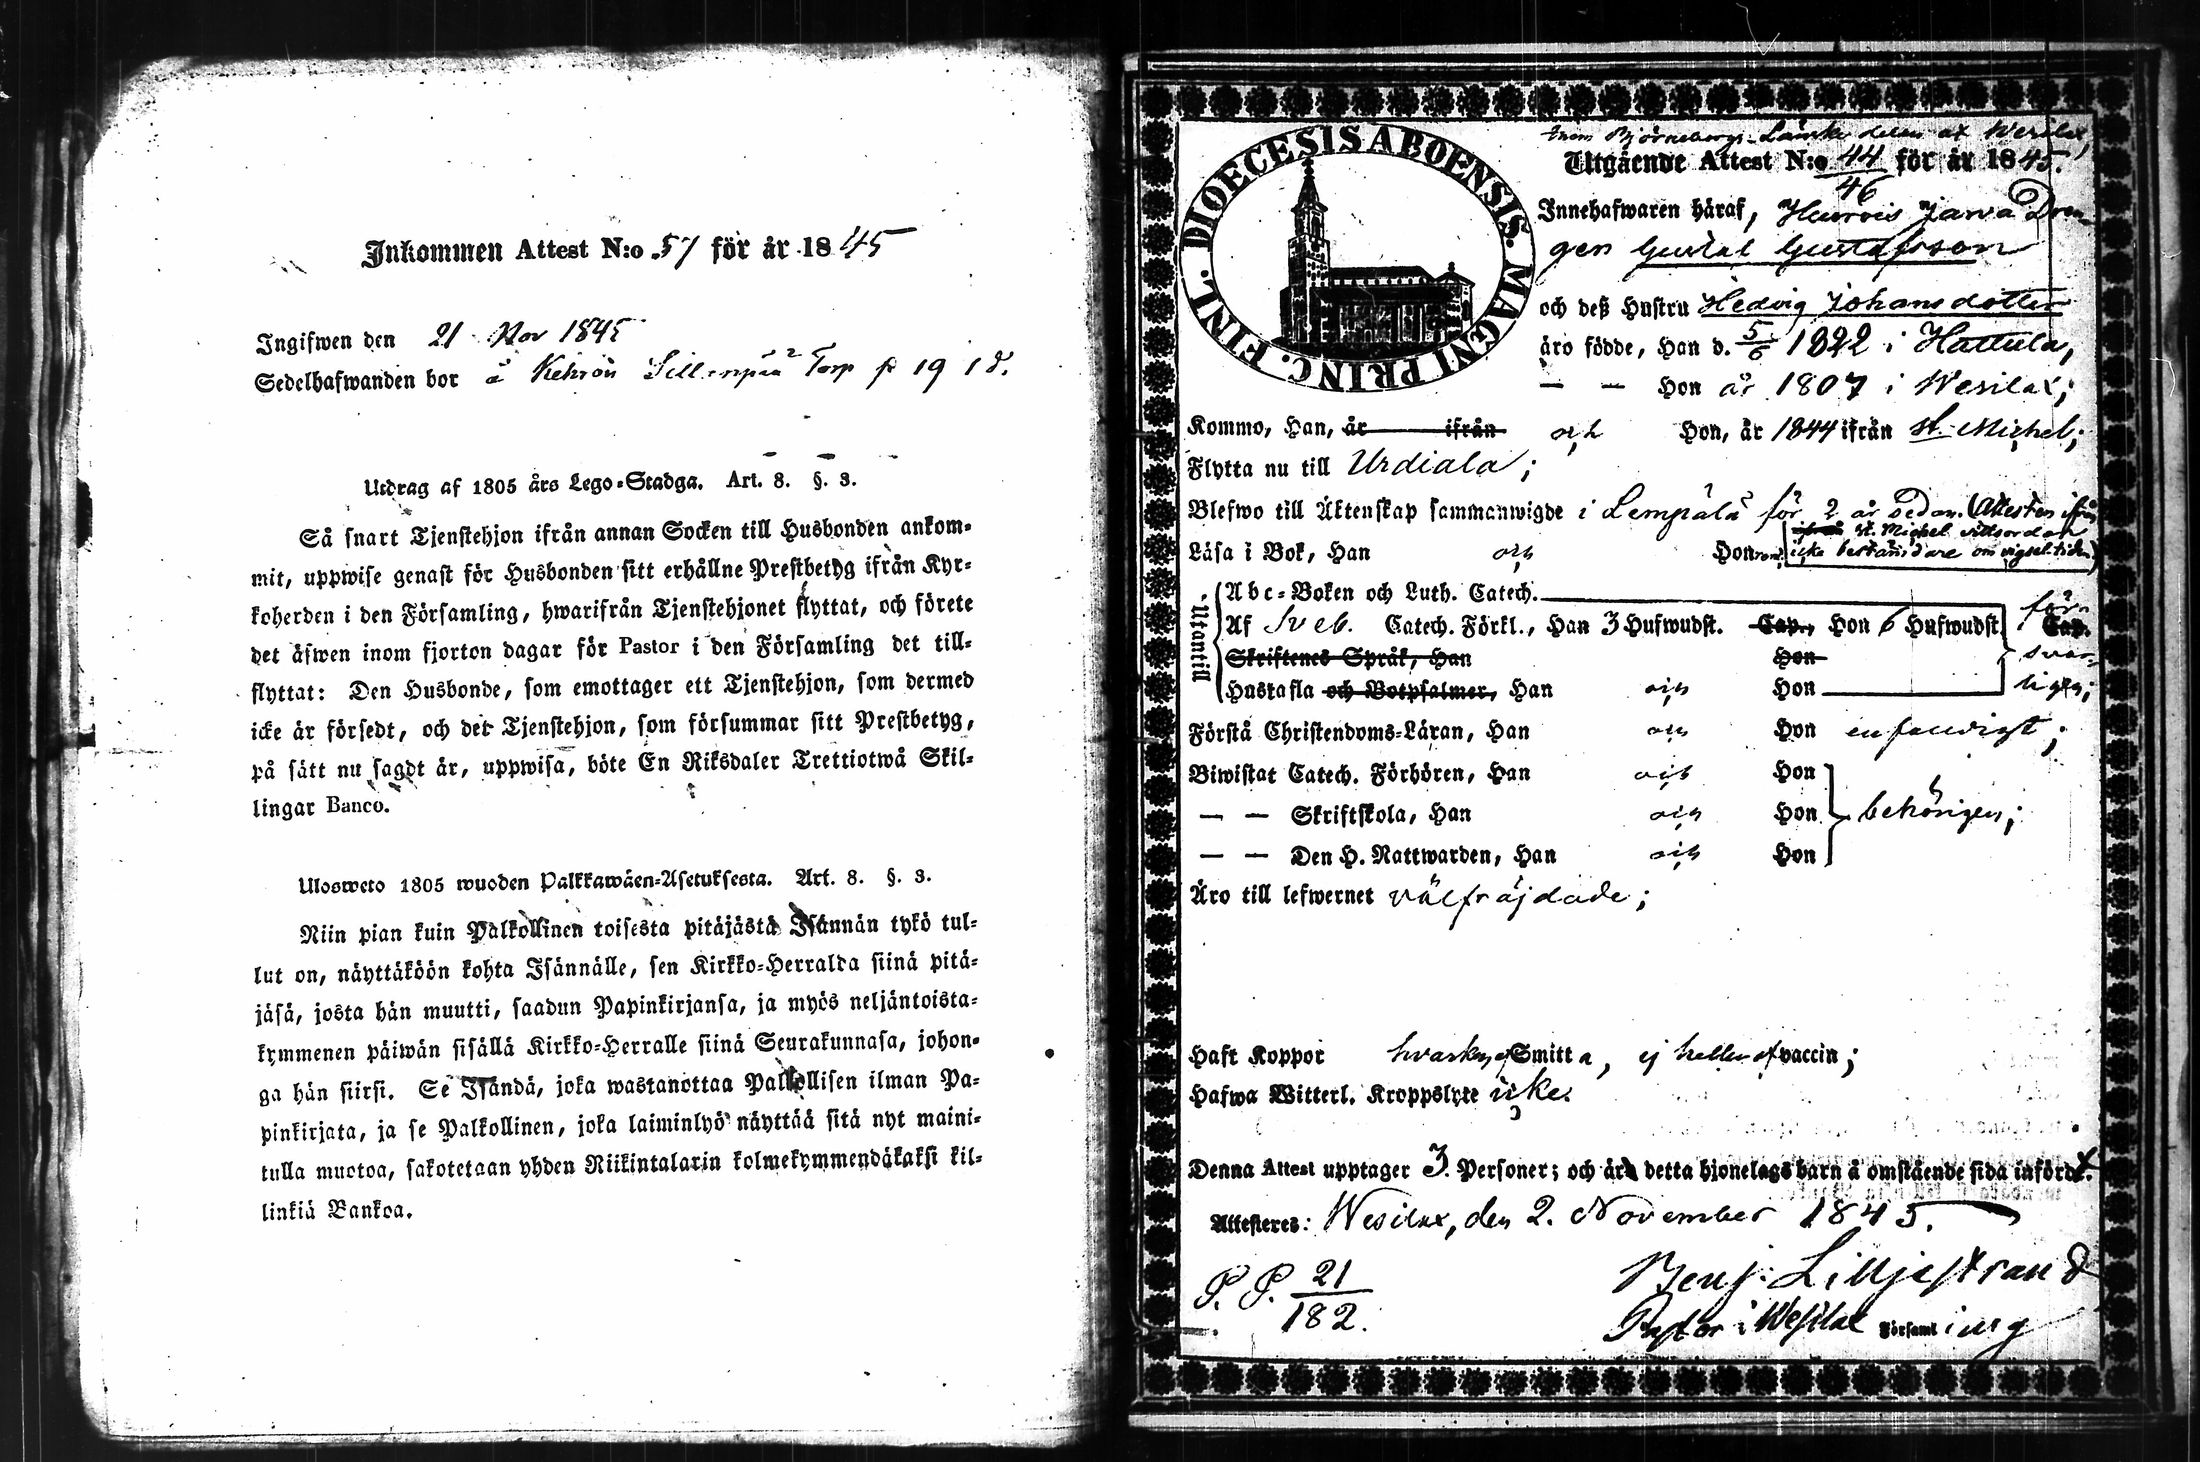 Inkommen Attest N:o 57 för år 1845
Ingifwen den 21 Nov 1845
Sedelhafwanden bor å Torp p 19
Utdrag af 1805 års Lego-Stadga. Art. 8. §. 3.
Så snart Tjenstehjon ifrån annan Socken till Husbonden ankom-
mit, uppwise genast för Husbonden sitt erhållne Prestbetyg ifrån Kyr-
koherden i den Församling, hwarifrån Tjenstehjonet flyttat, och förete
det äfwen inom fjorton dagar för Pastor i den Församling det till-
flyttat: Den Husbonde, som emottager ett Tjenstehjon, som dermed
icke är försedt, och det Tjenstehjon, som försummar sitt Prestbetyg,
på sätt nu sagdt är, uppwisa, böte En Riksdaler Trettiotwå Skil-
lingar Banco.
Ulosweto 1805 wuoden Palkkawäen-Asetuksesta. Art. 8. §. 3.
Niin pian kuin Palkollinen toisesta pitäjästä Isännän tykö tul-
lut on, näyttäköön kohta Isännälle, sen Kirkko-Herralda siinä pitä-
jäsä, josta hän muutti, saadun Papinkirjansa, ja myös neljäntoista-
kymmenen päiwän sisällä Kirkko-Herralle siinä Seurakunnasa, johon-
ga hän siirsi. Se Isändä, joka wastanottaa Palkollisen ilman Pa-
pinkirjata, ja se Palkollinen, joka laiminlyö näyttää sitä nyt maini-
tulla muotoa, sakotetaan yhden Riikintalarin kolmekymmendäkaksi kil-
linkiä Bankoa.
DIOECESIS ABOENSIS. MAGNI PRINC. FINL.
Inom Björneborgs Länsdelen af Wesilax,
Utgående Attest N:o 44/46 för år 1845.
Innehafwaren häraf, Jarva Dren-
gen Gustaf Gustafsson
och deß Hustru Hedvig Johansdotter
äro födde, Han d. 5/6 1822 i Hattula,
— — Hon år 1807 i Wesilax;
Kommo, Han, år ifrån och Hon, år 1844 ifrån St. Michel;
Flytta nu till Urdiala;
Blefwo till Äktenskap sammanwigde i Lempälä för 2 år sedan. (Attesten ifrån
ifrån St. Michel vittsordar
Läsa i Bok, Han och Hon icke bestämdare om vigseltiden)
Utantill
Abc-Boken och Luth. Catech.
Af Sveb. Catech. Förkl., Han 3 Hufwudst. Cap., Hon 6 Hufwudst. Cap.
för-
Skriftenes Språk, Han Hon
svar-
Hustafla och Botpsalmer, Han och Hon
ligen;
Förstå Christendoms-Läran, Han och Hon enfaldigt;
Biwistat Catech. Förhören, Han och Hon
— — Skriftskola, Han och Hon behörigen;
— — Den H. Nattwarden, Han och Hon
Äro till lefwernet välfräjdade;
Haft Koppor hvarken af Smitta, ej heller af vaccin;
Hafwa Witterl. Kroppslyte icke.
Denna Attest upptager 3. Personer; och är detta hjonelags barn å omstående sida infördt.
Attesteres: Wesilax, den 2. November 1845.
P. P. 21/182.
Benj. Lilljestrand
Pastor i Wesilax Församling